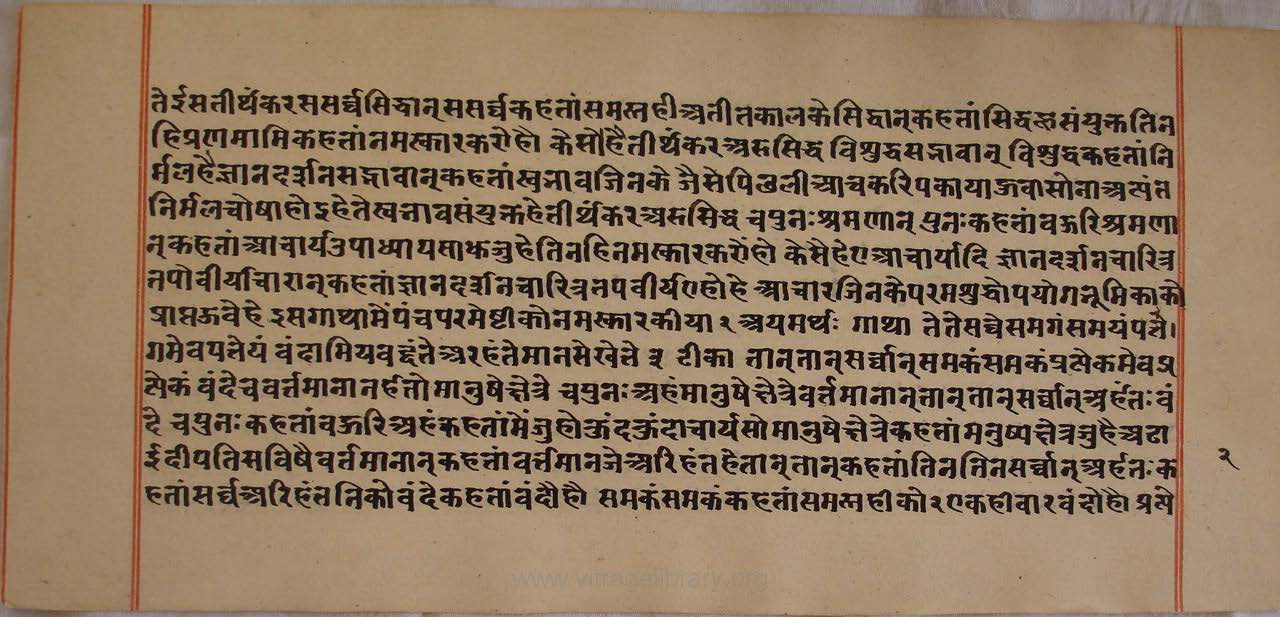 तेईसतीर्थंकरससर्व्वसिद्वान्ससर्व्वकहतांसमस्तहीअतीतकालकेसिद्वान्कहतांसिद्वज्ञसंयुक्ततिन
हिप्रणमामिकहतांनमस्कारकरोहौ केसौहैतीर्थंकरअरुसिद्व विशुद्वसद्भावान् विशुद्वकहतांनि
र्मलहैज्ञानदर्शनसद्भावान्कहतांस्वभावजिनकै जैसेपिछलीआंचकरिपकायाऊवासोनाअत्यंत
निर्मलचोषाहोइहेतेस्वभावसंयुक्तहेतीर्थंकरअरुसिद्व चपुनःश्रमणान् पुनःकहतांवऊरिश्रमणा
न्कहतांआचार्यउपाध्यायसाधजुहेतिनहिनमस्कारकरोंहो केसैहेएआचार्यादि ज्ञानदर्शनचारित्र
तपोवीर्याचारान्कहतांज्ञानदर्शनचारित्रतपवीर्यएहोहे आचारजिनकैपरमशुद्वोपयोगभूमिकाकौ
प्राप्तऊवैहै इसगाथामेंपंचपरमेष्टीकौनमस्कारकीया २ अयमर्थः गाथा तेतेसव्वेसमगंसमयंपत्ते।
गमेवपत्तेयं वंदामियवट्टंतेअरहंतेमानसेखेत्ते ३ टीका तान्तान्सर्व्वान्समकंसमकंप्रत्येकमेवप्र
त्येकं वंदेचवर्त्तमानानर्हतोमानुषेक्षेत्रे चपुनःअहंमानुषेक्षेत्रेवर्त्तमानान्तान्तान्सर्व्वान्अर्हतःवं
दे चपुनःकहतांवऊरिअहंकहतांमेंजुहोकुंदकुंदाचार्यसोमानुषेक्षेत्रेकहतांमनुष्यक्षेत्रजुहैअढा
ईदीपतिसविषैवर्तमानान्कहतांवर्त्तमानजेअरिहंतहैतान्तान्कहतांतिनतिनसर्व्वान्अर्हतःक
हतांसर्व्वअरिहंतनिकोवंदेकहतांवंदौहौ समकंसमकंकहतांसमस्तहीको२एकहीवारवंदोहो प्रत्ये
२
www.vitragelibrary.org